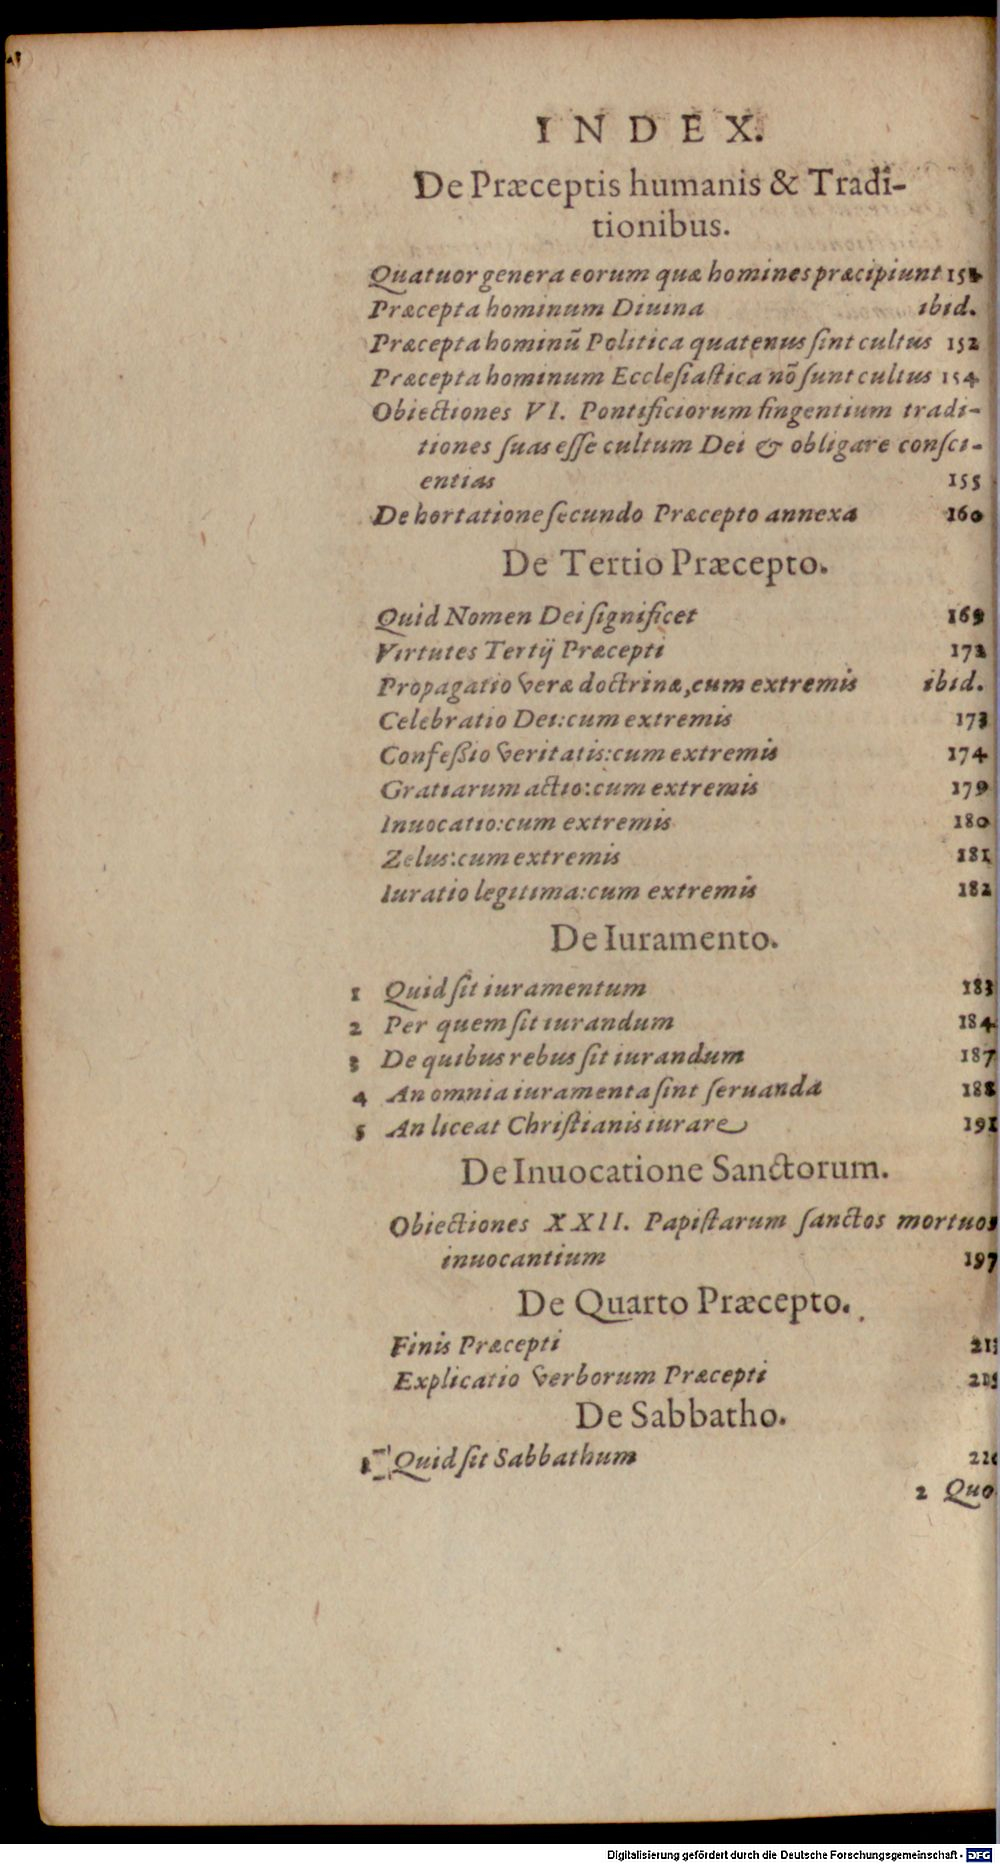 INDEX.
De Præceptis humanis & Tradi-
tionibus.
Quatuor genera eorum quæ homines præcipiunt
Præcepta hominum Diuina ibid.
Præcepta hominũ Politica quatenus ſint cultus 152
Præcepta hominum Eccleſiaſtica nõ ſunt cultus 154
Obiectiones VI. Pontificiorum fingentium tradi-
tiones ſuas eſſe cultum Dei & obligare conſci-
entias 155
De hortatione ſecundo Præcepto annexa 160
De Tertio Præcepto.
Quid Nomen Dei ſignificet 169
Virtutes Tertij Præcepti 172
Propagatio veræ doctrinæ, cum extremis ibid.
Celebratio Dei: cum extremis 173
Confeßio veritatis: cum extremis 174
Gratiarum actio: cum extremis 179
Inuocatio: cum extremis 180
Zelus: cum extremis 181
Iuratio legitima: cum extremis 182
De Iuramento.
1 Quid ſit iuramentum 183
2 Per quem ſit iurandum 184
3 De quibus rebus ſit iurandum 187
4 An omnia iuramenta ſint ſeruanda 188
5 An liceat Chriſtianis iurare 191
De Inuocatione Sanctorum.
Obiectiones XXII. Papiſtarum ſanctos mortuos
inuocantium 197
De Quarto Præcepto.
Finis Præcepti
Explicatio verborum Præcepti
De Sabbatho.
1 Quid ſit Sabbathum
2 Quo
Digitalisierung gefördert durch die Deutsche Forschungsgemeinschaft - DFG